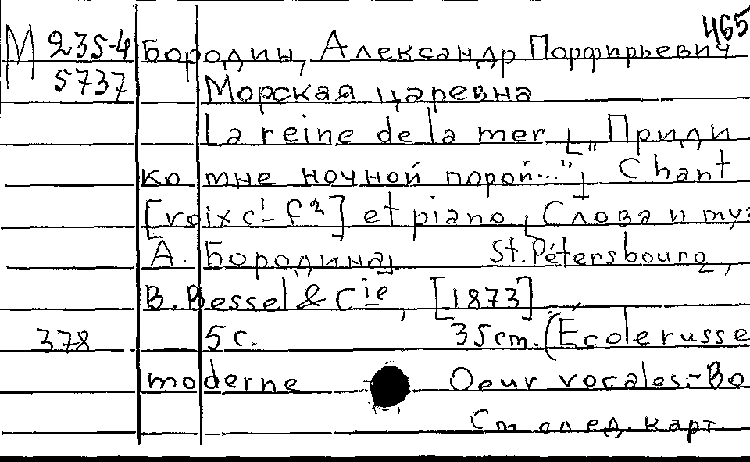 465
М 235-4 Бородин, Александр Порфирьевич
5737 Морская царевна
La reine de la mer [„Приди
ко мне ночной порой..."] Chant
[voix c¹-f²] et piano [Слова и муз
А. Бородина] St. Pétersbourg,
B. Bessel & Cie, [1873]
378 5 с. 35 cm. (École russe
moderne Oeuv vocales.-Bo
См след. карт